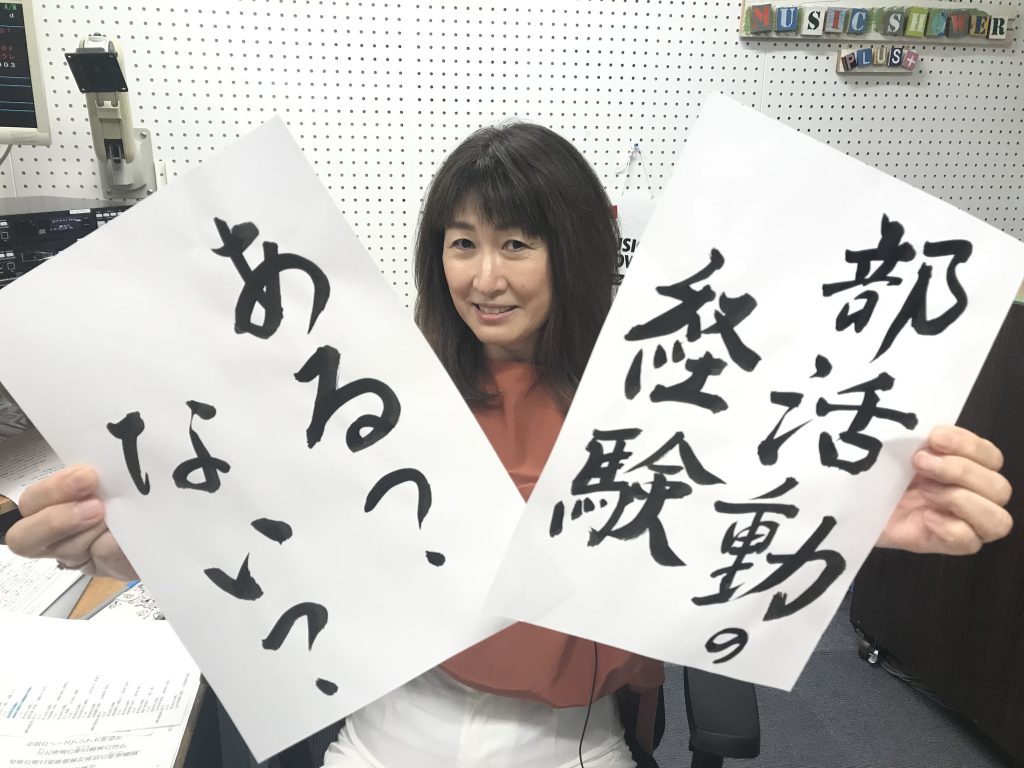 部活動の
経験
ある?
ない?
MUSIC SHOWER
PLUS+